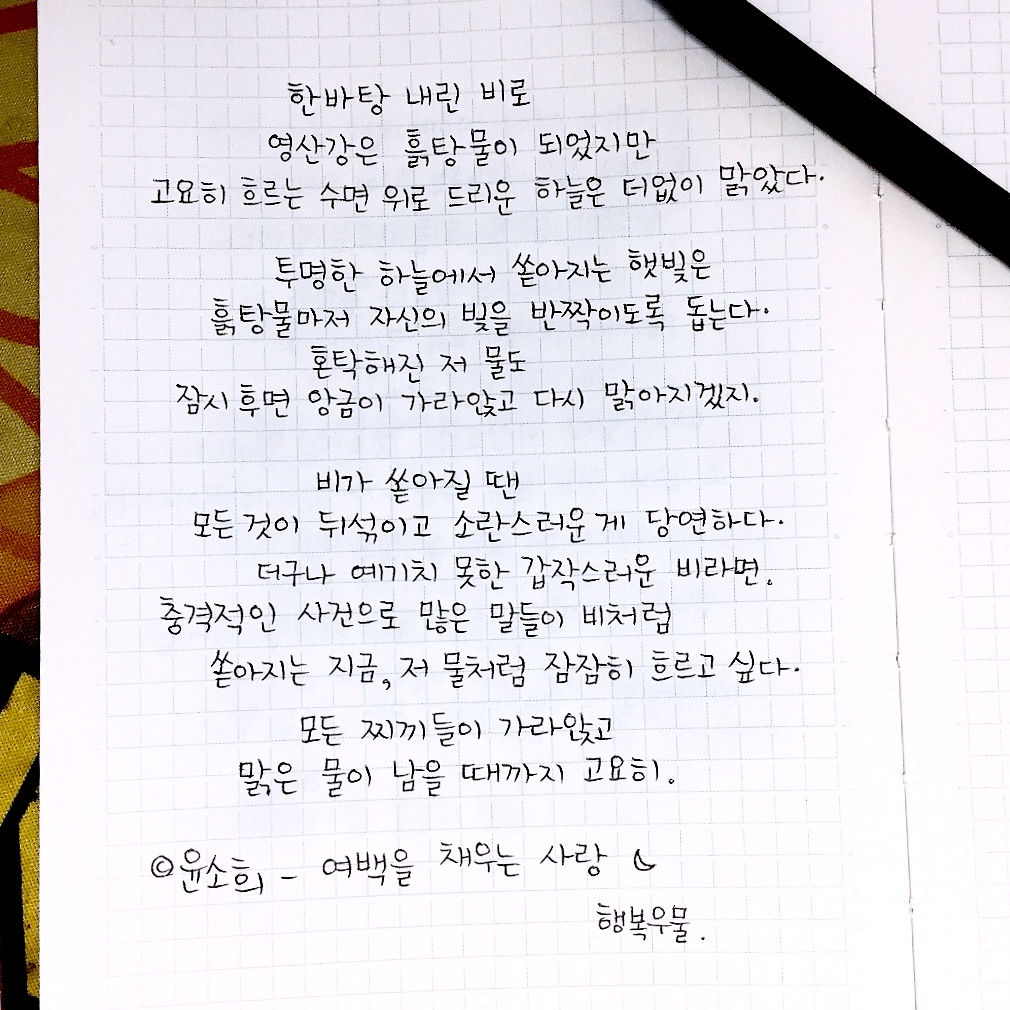 한바탕 내린 비로
영산강은 흙탕물이 되었지만
고요히 흐르는 수면 위로 드리운 하늘은 더없이 맑았다.
투명한 하늘에서 쏟아지는 햇빛은
흙탕물마저 자신의 빛을 반짝이도록 돕는다.
혼탁해진 저 물도
잠시 후면 앙금이 가라앉고 다시 맑아지겠지.
비가 쏟아질 땐
모든 것이 뒤섞이고 소란스러운 게 당연하다.
더구나 예기치 못한 갑작스러운 비라면.
충격적인 사건으로 많은 말들이 비처럼
쏟아지는 지금, 저 물처럼 잠잠히 흐르고 싶다.
모든 찌끼들이 가라앉고
맑은 물이 남을 때까지 고요히.
©윤소희 - 여백을 채우는 사랑
행복우물.